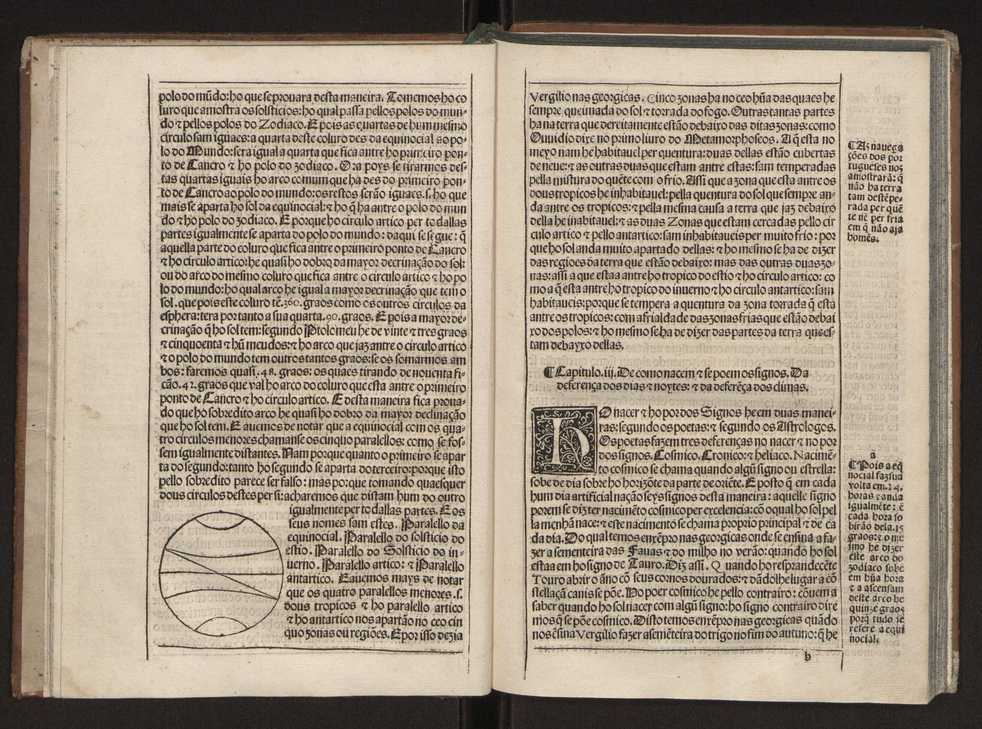 polo do mũdo: ho que se prouara desta maneira. Tomemos ho co
luro que amostra os solsticios: ho qual passa pellos polos do mun-
do ⁊ pellos polos do Zodiaco. E pois as quartas de hum mesmo
circulo sam iguaes: a quarta deste coluro des da equinocial ao po-
lo do Mundo: sera igual a quarta que fica antre ho primeiro pon-
to de Cancro ⁊ ho polo do zodiaco. Ora poys se tirarmos des-
tas quartas iguais ho arco comum que ha des do primeiro pon-
to de Cancro ao polo do mundo: os restos serão iguaes .s. ho que
mais se aparta ho sol da equinocial: ⁊ ho q̃ ha antre o polo do mun
do ⁊ ho polo do zodiaco. E porque ho circulo artico per todallas
partes igualmente se aparta do polo do mundo: daqui se segue: q̃
aquella parte do coluro que fica antre o primeiro ponto de Cancro
⁊ ho circulo artico: he quasi ho dobro da mayor decrinação do sol:
ou do arco do mesmo coluro que fica antre o circulo artico ⁊ ho po
lo do mundo: ho qual arco he igual a mayor decrinação que tem o
sol. que pois este coluro tẽ .360. graos como os outros circulos da
esphera: tera por tanto a sua quarta .90. graos. E pois a mayor de-
crinação q̃ ho sol tem: segundo Ptolomeu he de vinte ⁊ tres graos
⁊ cinquoenta ⁊ hũ meudos: ⁊ ho arco que jaz antre o circulo artico
⁊ o polo do mundo tem outros tantos graos: se os somarmos am
bos: faremos quasi .48. graos: os quaes tirando de nouenta fi-
cão .42. graos que val ho arco do coluro que esta antre o primeiro
ponto de Cancro ⁊ ho circulo artico. E desta maneira fica proua-
do que ho sobredito arco he quasi ho dobro da mayor declinação
que ho sol tem. E auemos de notar que a equinocial com os qua-
tro circulos menores chamanse os cinquo parallelos: como se fos-
sem igualmente distantes. Nam porque quanto o primeiro se apar
ta do segundo: tanto ho segundo se aparta do terceiro: porque isto
pello sobredito parece ser falso: mas porque tomando quaesquer
dous circulos destes per si: acharemos que distam hum do outro
igualmente per todallas partes. E os
seus nomes sam estes. Paralello da
equinocial. Paralello do solsticio do
estio. Paralello do Solsticio do in-
uerno. Paralello artico: ⁊ Paralello
antartico. E auemos mays de notar
que os quatro parallelos menores .s.
dous tropicos ⁊ ho paralello artico
⁊ ho antartico nos apartão no ceo cin
quo zonas ou regiões. E por isso dezia
Vergilio nas georgicas. Cinco zonas ha no ceo hũa das quaes he
sempre queimada do sol ⁊ torrada do fogo. Outras tantas partes
ha na terra que dereitamente estão debaixo das ditas zonas: como
Ouuidio dize no primo liuro do Metamorphoseos. A q̃ esta no
meyo nam he habituael per quentura: duas dellas estão cubertas
de neue: ⁊ as outras duas que estam antre estas: sam temperadas
pella mistura do quẽte com o frio. Assi que a zona que esta antre os
dous tropicos he inhabitauel: pella quentura do sol que sempre an-
da antre os tropicos: ⁊ pella mesma causa a terra que jaz debaixo
della he inhabitauel: ⁊ as duas Zonas que estam cercadas pello cir
culo artico ⁊ pello antartico: sam inhabitaueis per muito frio: por
que ho sol anda muito apartado dellas: ⁊ ho mesmo se ha de dizer
das regiões da terra que estão debaixo: mas das outras duas zo-
nas: assi a que estaa antre ho tropico do estio ⁊ ho circulo artico: co
mo a q̃ esta antre ho tropico do inuerno ⁊ ho circulo antartico: sam
habitaueis: porque se tempera a quentura da zona torrada q̃ esta
antre os tropicos: com a frialdade das zonas frias que estão debai
xo dos polos: ⁊ ho mesmo se ha de dizer das partes da terra que es-
tam debayxo dellas.
¶ Capitulo. iij. De como nacem ⁊ se poem os signos. Da
deferença dos dias ⁊ noytes: ⁊ da deferẽça dos climas.
HO nacer ⁊ ho por dos Signos he em duas manei
ras: segundo os poetas: ⁊ segundo os Astrologos.
Os poetas fazem tres deferenças no nacer ⁊ no por
dos signos. Cosmico. Cronico: ⁊ heliaco. Nacimẽ-
to cosmico se chama quando algũ signo ou estrella:
sobe de dia sobre ho horizõte da parte de oriẽte. E posto q̃ em cada
hum dia artificial nação seys signos desta maneira: aquelle signo
porem se diz ter nacimẽto cosmico per excelencia: cõ o qual ho sol pel
la menhã nace: ⁊ este nacimento se chama proprio principal ⁊ de ca
da dia. Do qual temos enxẽpro nas georgicas onde se ensina a fa-
zer a sementeira das Fauas ⁊ do milho no verão: quando ho sol
estaa em ho signo de Tauro. Diz assi. Quando ho resprandecẽte
Touro abrir o año cõ seus cornos dourados: ⁊ dãdolhe lugar a cõ
stellaçã canis se põe. Do poer cosmico he pello contrairo: cõuem a
saber quando ho sol nacer com algũ signo: ho signo contrairo dire
mos q̃ se põe cosmico. Disto temos enxẽpro nas georgicas quãdo
nos ẽsina Vergilio fazer a semẽteira do trigo no fim do autuno: q̃ he
b
¶ As nauega
ções dos por
tugueses nos
amostrarã: q̃
não ha terra
tam destẽpe-
rada per quẽ
te nẽ per fria
em q̃ não aja
homẽs.
a
¶ Pois a eq̃
nocial faz sua
volta em .24.
horas ⁊ anda
igualmẽte: ẽ
cada hora so
birão dela .15
graos: ⁊ o me
smo he dizer
este arco do
zodiaco sobe
em hũa hora
⁊ a ascensam
deste arco he
quinze graos
porq̃ tudo se
refere a equi
nocial.